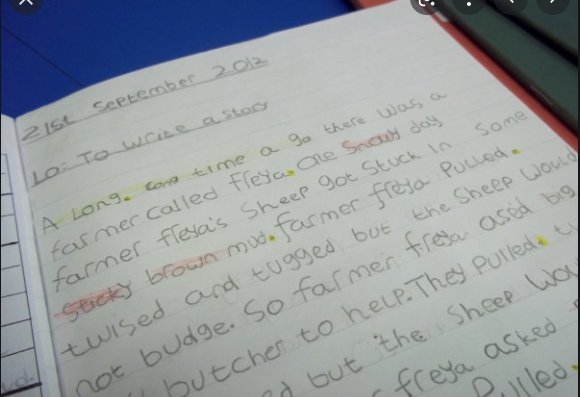 21st September 2012
LO: To write a story
A Long. Long time a go there was a
farmer called freya. One Snowy day
farmer freya's Sheep got Stuck In Some
sticky brown mud. farmer freya Pulled.
twised and tugged but the Sheep would
not budge. So farmer freya ased big
butcher to help. They Pulled.
but the Sheep
freya asked
Pulled.